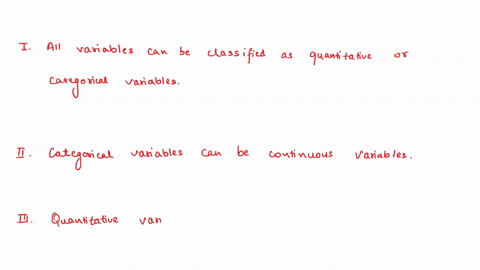 I. All variables can be classified as quantitative or
categorical variables.
II. Categorical variables can be continuous variables.
III. Quantitative van